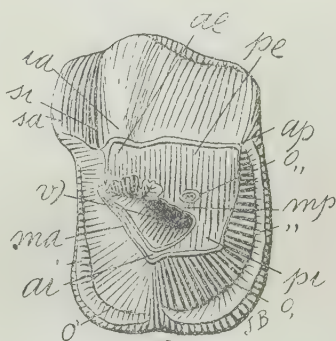 ae
pe
ia
si
sa
ap
o,,
v
mp
ma
,,
ai
pi
o,
o'
JB